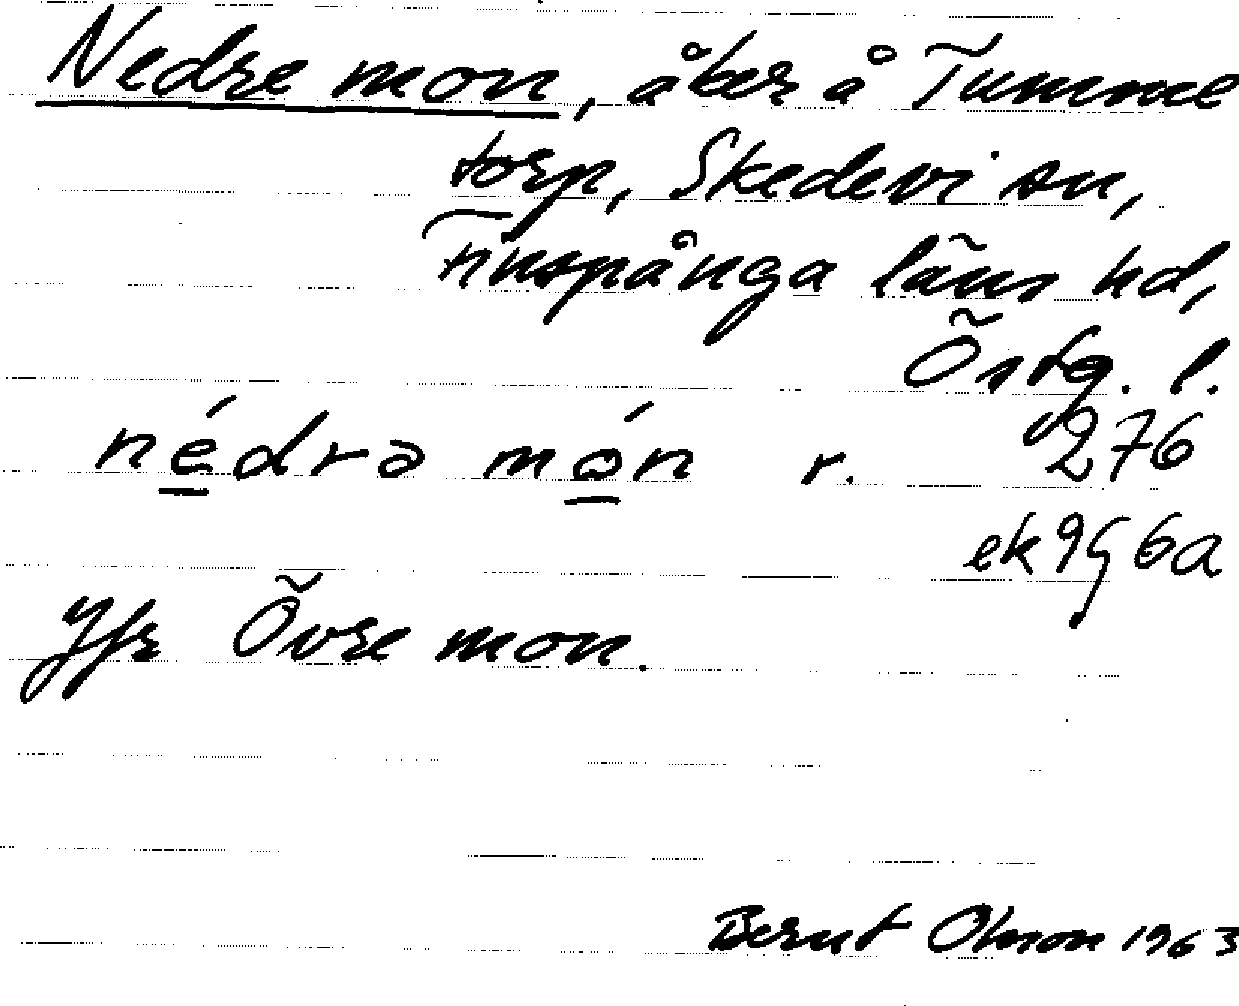 Nedre mon, åker å Tumme
torp, Skedevi sn,
Finspånga läns hd,
Östg. l.
nédrə món r. 276
ek 9g 6a
Jfr Övre mon.
Bernt Olsson 1963